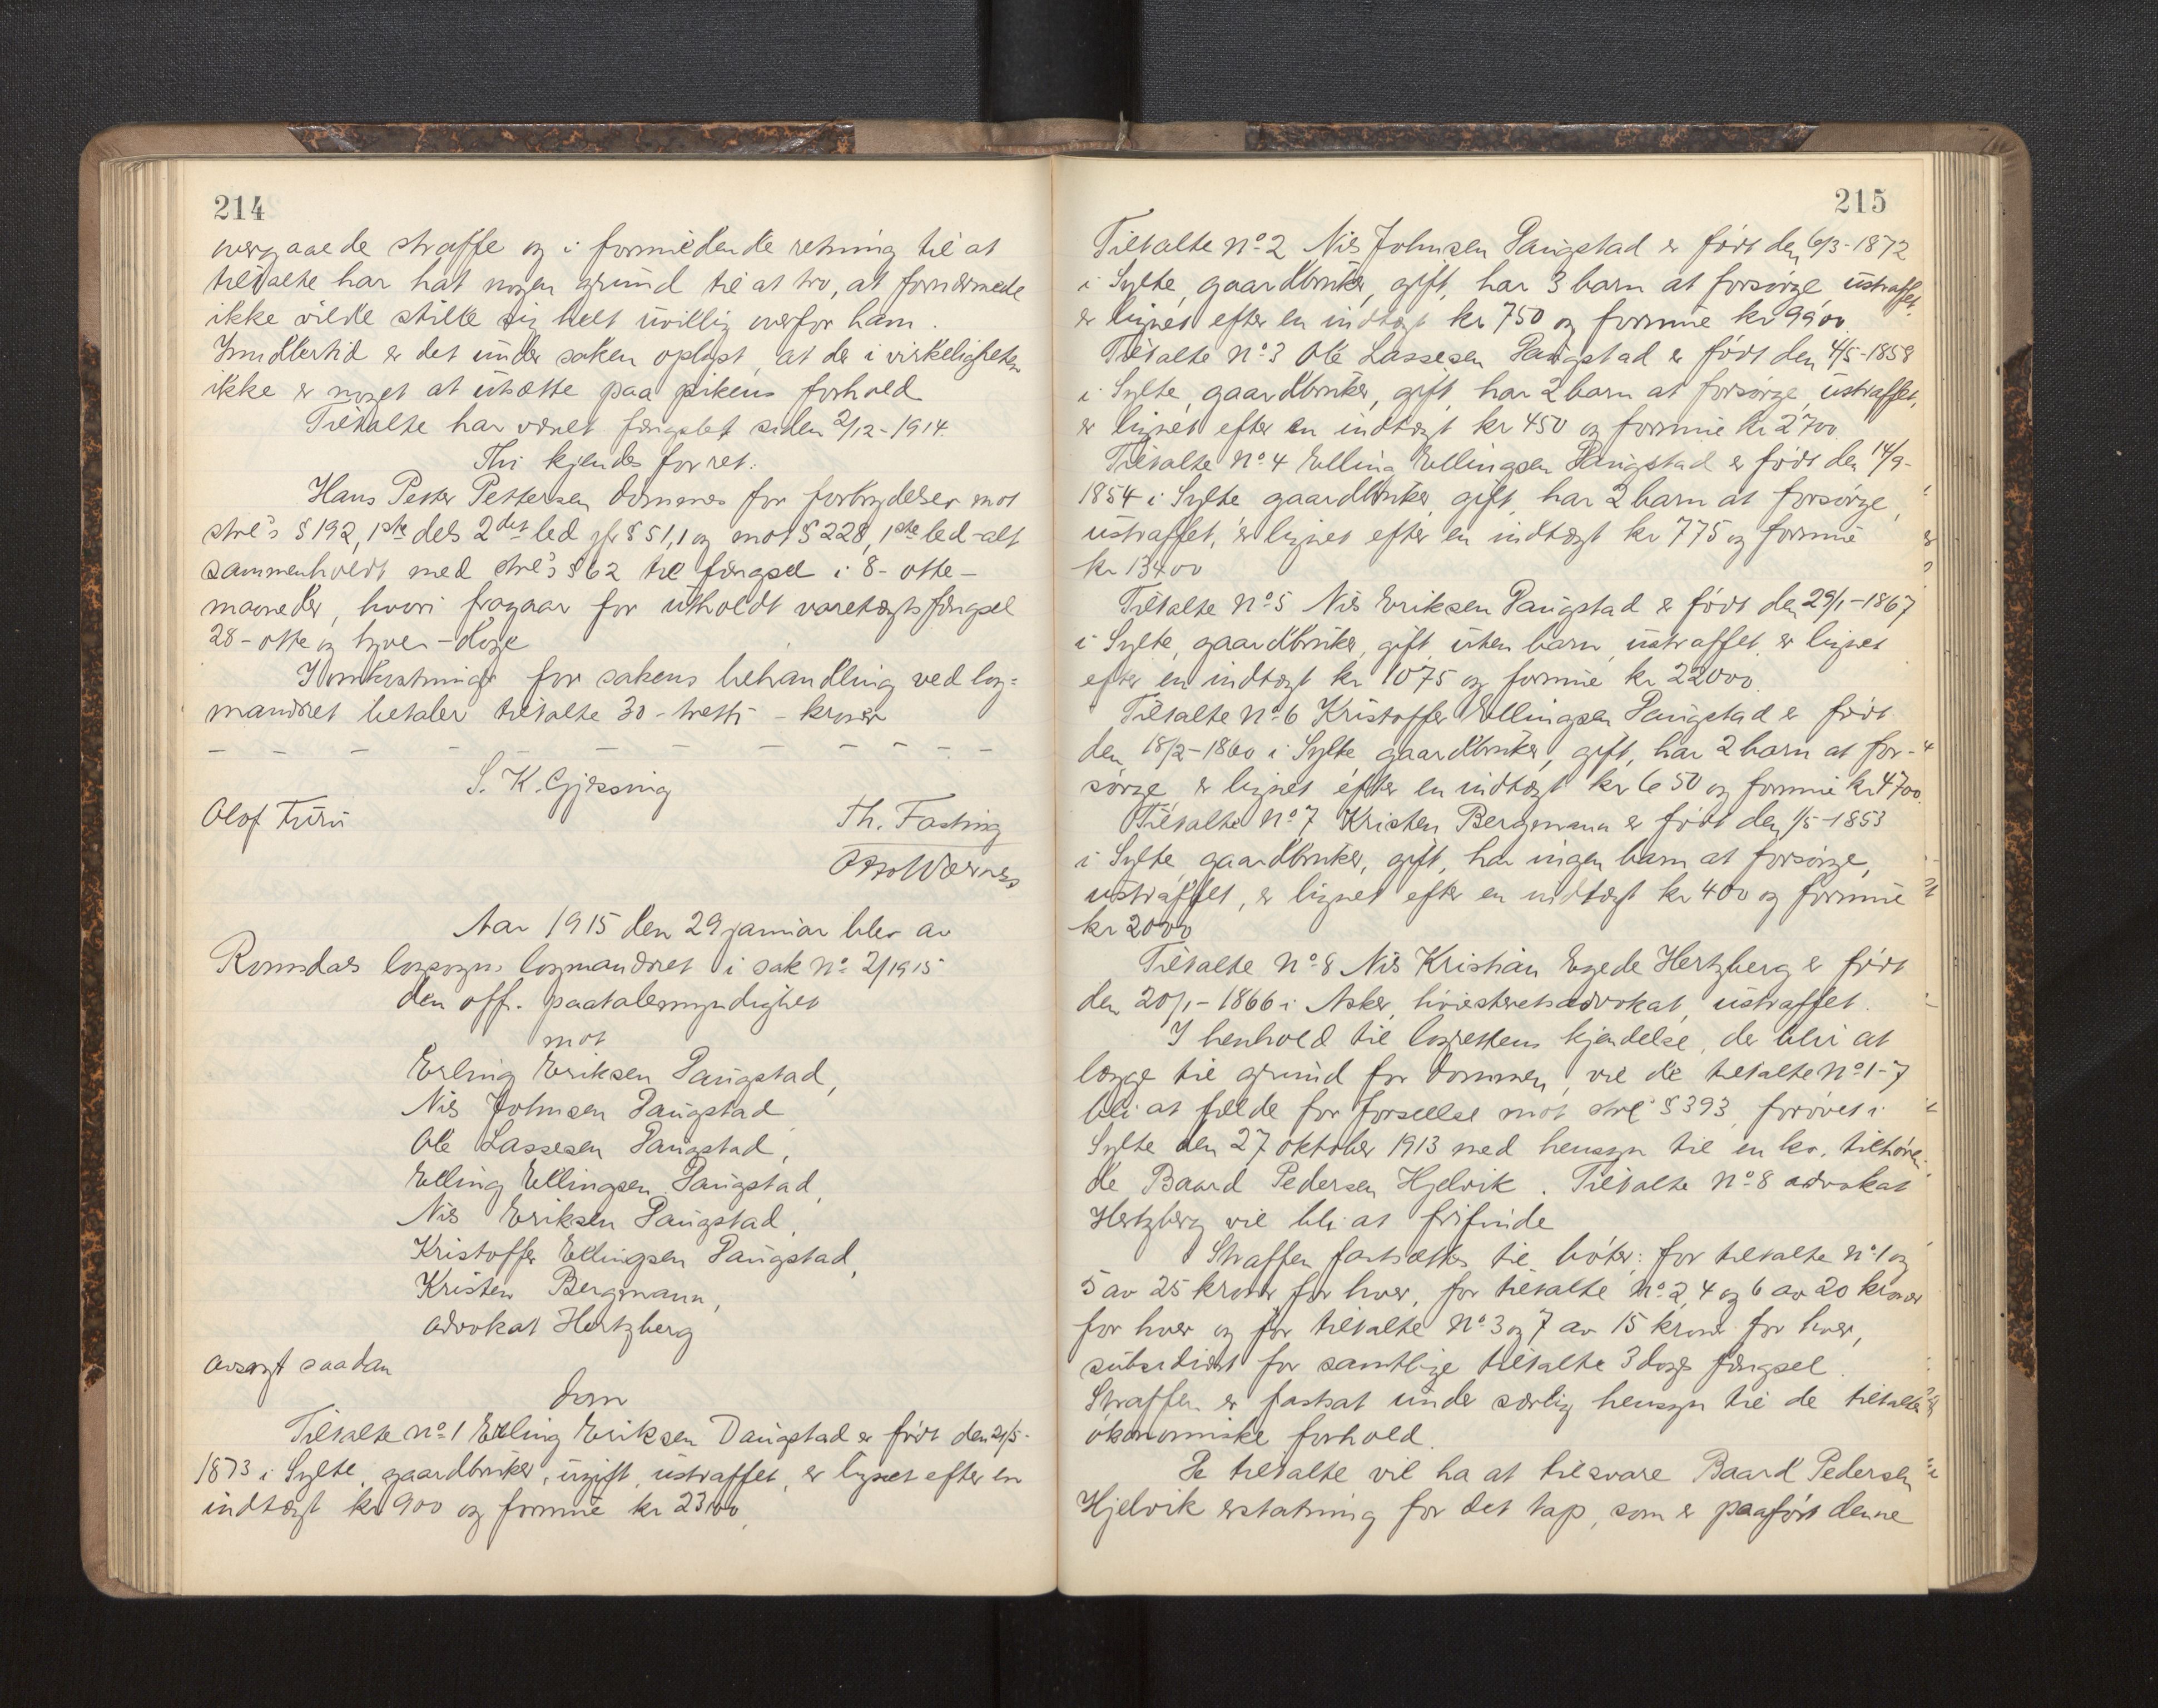 214
overgaaende straffe og i formildende retning til at
tiltalte har hat nogen grund til at tro, at fornærmede
ikke vilde stille sig helt uvillig overfor ham.
Imidlertid er det under saken oplyst, at der i virkeligheten
ikke er noget at utsætte paa pikens forhold
Tiltalte har været fængslet siden 2/12-1914.
Thi kjendes for ret:
Hans Petter Pettersen dømmes for forbrydelser mot
strl's § 192, 1ste dels 2det led jfr § 51,1 og mot § 228, 1ste led - alt
sammenholdt med strl's § 62 til fængsel i 8 - otte -
maaneder, hvori fragaar for utholdt varetægtsfængsel
28 - otte og tyve - dage
I omkostninger for sakens behandling ved lag=
mandsret betaler tiltalte 30 - tretti - kroner
S. K. Gjessing
Olof Furu
Th. Fasting
Otto Wærness
Aar 1915 den 29 januar blev av
Romsdals lagsogns lagmandsret i sak No 2/1915
den off. paatalemyndighet
mot
Erling Eriksen Daugstad,
Nils Johnsen Daugstad
Ole Lassesen Daugstad,
Elling Ellingsen Daugstad,
Nils Eriksen Daugstad,
Kristoffer Ellingsen Daugstad,
Kristen Bergmann,
advokat Hertzberg
avsagt saadan
dom
Tiltalte No 1 Erling Eriksen Daugstad er født den 21/5-
1873 i Sylte, gaardbruker, ugift, ustraffet, er lignet efter en
indtægt kr 900 og formue kr 23100,
215
Tiltalte No 2 Nils Johnsen Daugstad er født den 6/3-1872
i Sylte, gaardbruker, gift, har 3 barn at forsørge, ustraffet,
er lignet efter en indtægt kr 750 og formue kr 9900.
Tiltalte No 3 Ole Lassesen Daugstad er født den 4/5-1858
i Sylte, gaardbruker, gift, har 2 barn at forsørge, ustraffet,
er lignet efter en indtægt kr 450 og formue kr 2700.
Tiltalte No 4 Elling Ellingsen Daugstad er født den 14/9-
1854 i Sylte gaardbruker, gift, har 2 barn at forsørge,
ustraffet, er lignet efter en indtægt kr 775 og formue
kr 13400
Tiltalte No 5 Nils Eriksen Daugstad er født den 29/1-1867
i Sylte, gaardbruker, gift, uten barn, ustraffet, er lignet
efter en indtægt kr 1075 og formue kr 22000.
Tiltalte No 6 Kristoffer Ellingsen Daugstad er født
den 18/2-1860 i Sylte, gaardbruker, gift, har 2 barn at for-
sørge, er lignet efter en indtægt kr 650 og formue kr 4700.
Tiltalte No 7 Kristen Bergmann er født den 1/5-1853
i Sylte, gaardbruker, gift, har ingen barn at forsørge,
ustraffet, er lignet efter en indtægt kr 400 og formue
kr 2000
Tiltalte No 8 Nils Kristian Egede Hertzberg er født
den 20/1-1866 i Asker, høiesteretsadvokat, ustraffet.
I henhold til lagrettens kjendelse, der blir at
lægge til grund for dommen, vil de tiltalte No 1-7
bli at fælde for forseelse mot strl § 393, forøvet i
Sylte den 27 oktober 1913 med hensyn til en ko, tilhøren-
de Baard Pedersen Hjelvik. Tiltalte No 8 advokat
Hertzberg vil bli at frifinde
Straffen fastsættes til bøter: for tiltalte No 1 og
5 av 25 kroner for hver, for tiltalte No 2, 4 og 6 av 20 kroner
for hver og for tiltalte No 3 og 7 av 15 kroner for hver,
subsidiært for samtlige tiltalte 3 dages fængsel.
Straffen er fastsat under særlig hensyn til de tiltaltes
økonomiske forhold.
De tiltalte vil ha at tilsvare Baard Pedersen
Hjelvik erstatning for det tap, som er paaført denne